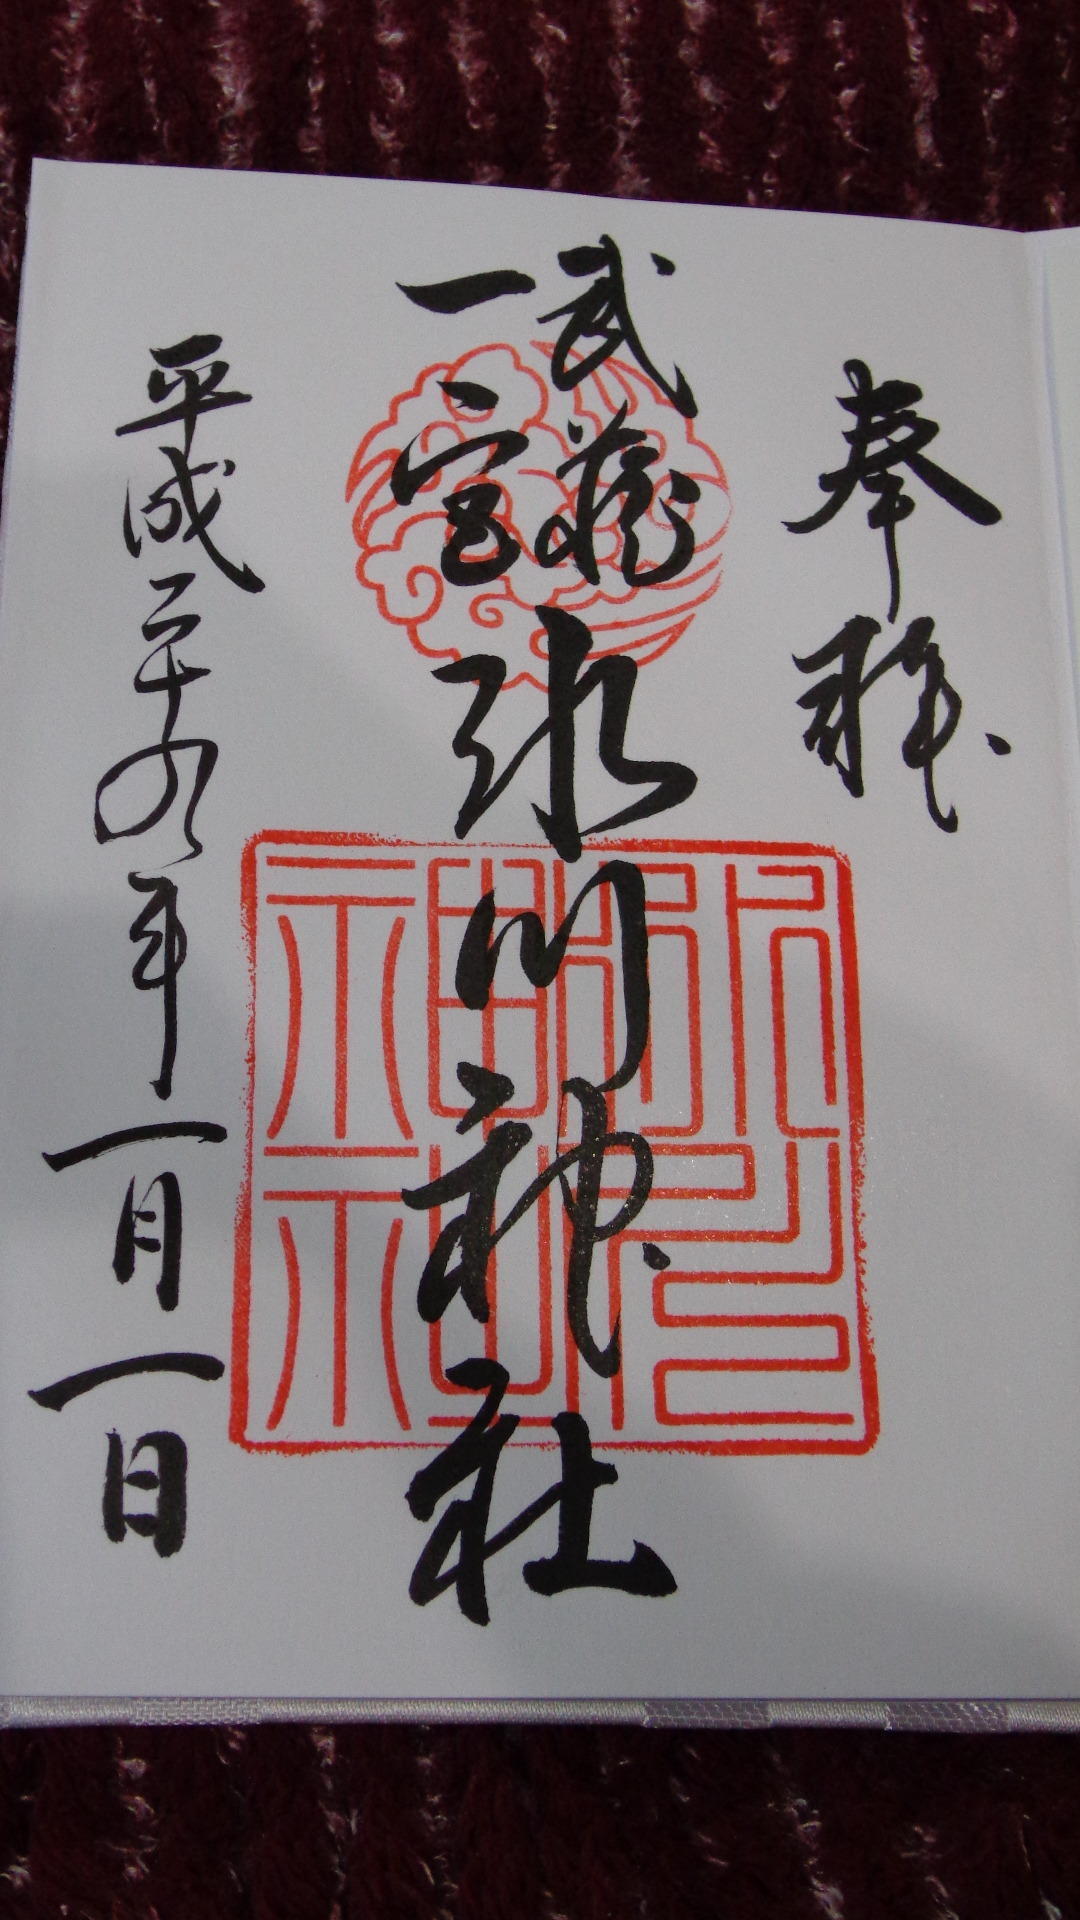 奉拝
武蔵
一宮
氷川神社
平成二十九年一月一日
氷川神社